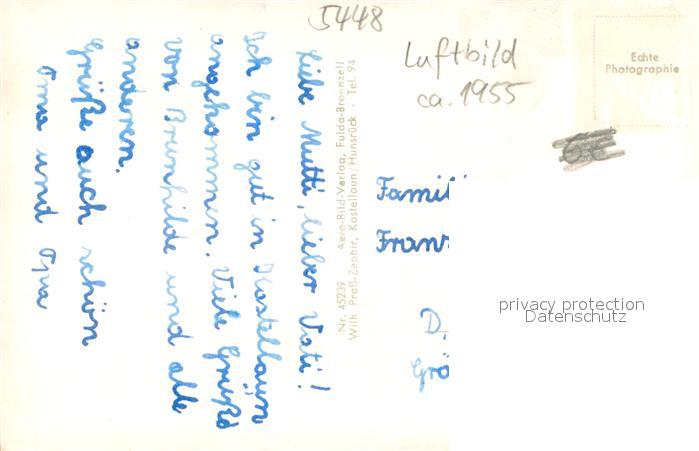 5448
Luftbild
ca. 1955
Echte
Photographie
Liebe Mutti, lieber Vati!
Ich bin gut in Kastellaün
angekommen. Viele Grüße
von Brunhilde und alle
anderen.
Grüße auch schön
Oma und Opa
Nr. 45239 Aero-Bild-Verlag, Fulda-Bronnzell
Wilh. Praß-Zephir, Kastellaun/Hunsrück · Tel. 94
Famili
Franz
D.
Grö
privacy protection
Datenschutz